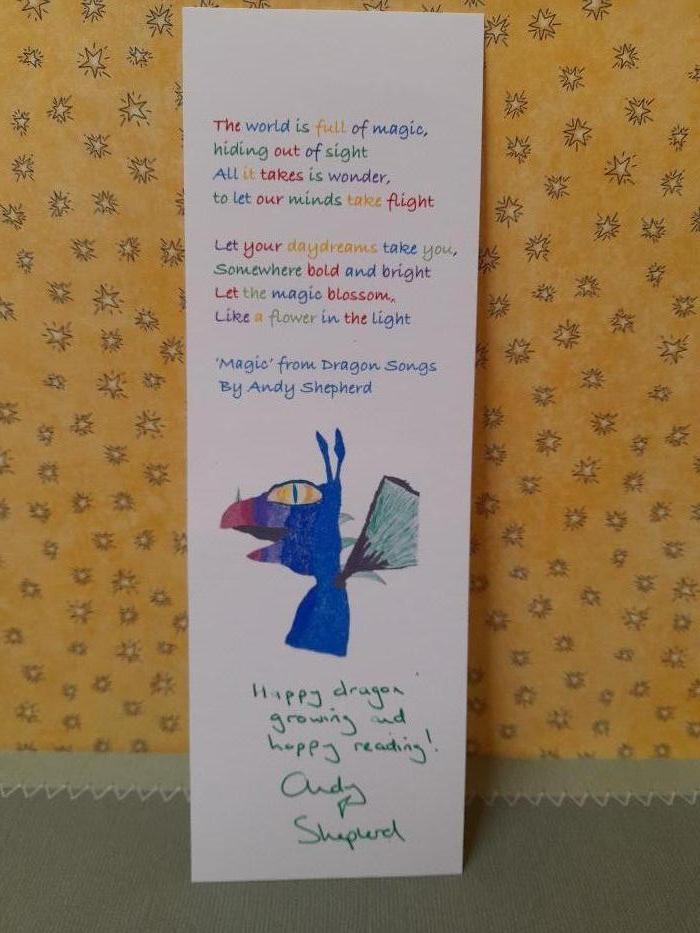 The world is full of magic,
hiding out of sight
All it takes is wonder,
to let our minds take flight
Let your daydreams take you,
Somewhere bold and bright
Let the magic blossom,
Like a flower in the light
'Magic' from Dragon Songs
By Andy Shepherd
Happy dragon
growing and
happy reading!
Andy
Shepherd